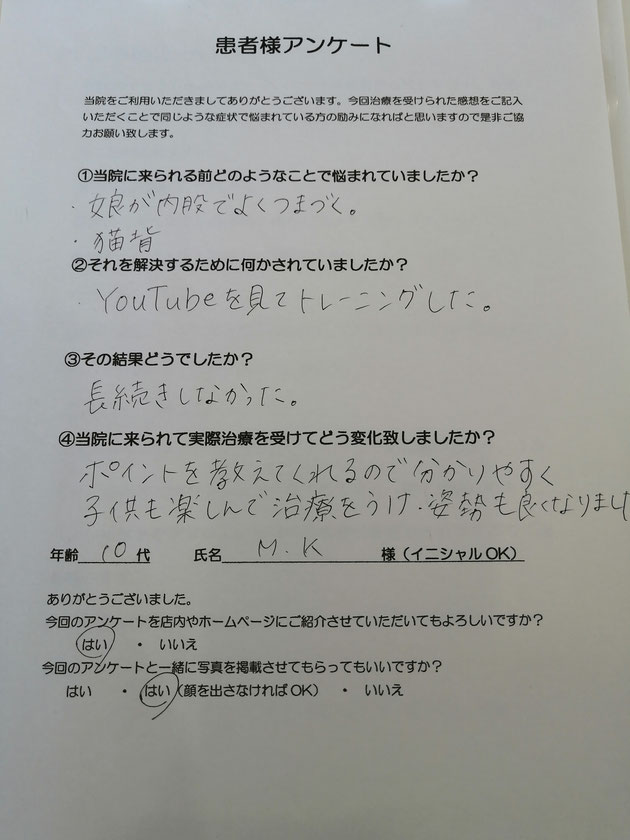 患者様アンケート
当院をご利用いただきましてありがとうございます。今回治療を受けられた感想をご記入
いただくことで同じような症状で悩まれている方の励みになればと思いますので是非ご協
力お願い致します。
①当院に来られる前どのようなことで悩まれていましたか？
・娘が内股でよくつまづく。
・猫背
②それを解決するために何かされていましたか？
・YouTubeを見てトレーニングした。
③その結果どうでしたか？
長続きしなかった。
④当院に来られて実際治療を受けてどう変化致しましたか？
ポイントを教えてくれるので分かりやすく
子供も楽しんで治療をうけ、姿勢も良くなりました
年齢 10 代 氏名 M.K 様（イニシャルOK）
ありがとうございました。
今回のアンケートを店内やホームページにご紹介させていただいてもよろしいですか？
はい ・ いいえ
今回のアンケートと一緒に写真を掲載させてもらってもいいですか？
はい ・ はい（顔を出さなければOK） ・ いいえ